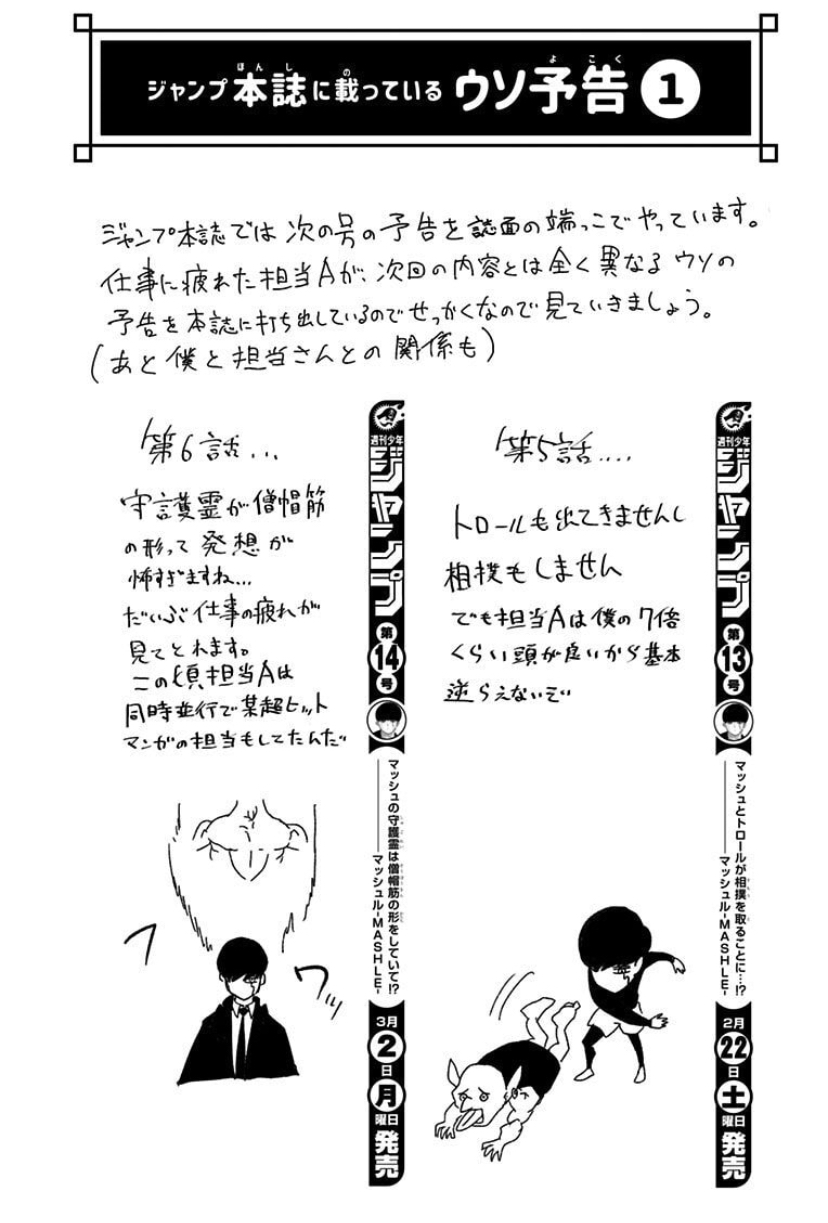 ジャンプ本誌に載っているウソ予告1
ジャンプ本誌では次の号の予告を誌面の端っこでやっています。
仕事に疲れた担当Aが、次回の内容とは全く異なるウソの
予告を本誌に打ち出しているのでせっかくなので見ていきましょう。
(あと僕と担当さんとの関係も)
週刊少年
ジャンプ
第
13
号
マッシュとトロールが相撲を取ることに…!?
――マッシュル-MASHLE-
2月
22
日
土
曜日
発売
第5話....
トロールも出てきませんし
相撲もしません
でも担当Aは僕の7倍
くらい頭が良いから基本
逆らえないぞ
週刊少年
ジャンプ
第
14
号
マッシュの守護霊は僧帽筋の形をしていて!?
――マッシュル-MASHLE-
3月
2
日
月
曜日
発売
第6話...
守護霊が僧帽筋
の形って発想が
怖すぎますね...
だいぶ仕事の疲れが
見てとれます。
この頃担当Aは
同時並行で某超ヒット
マンガの担当もしてたんだ
ワッ